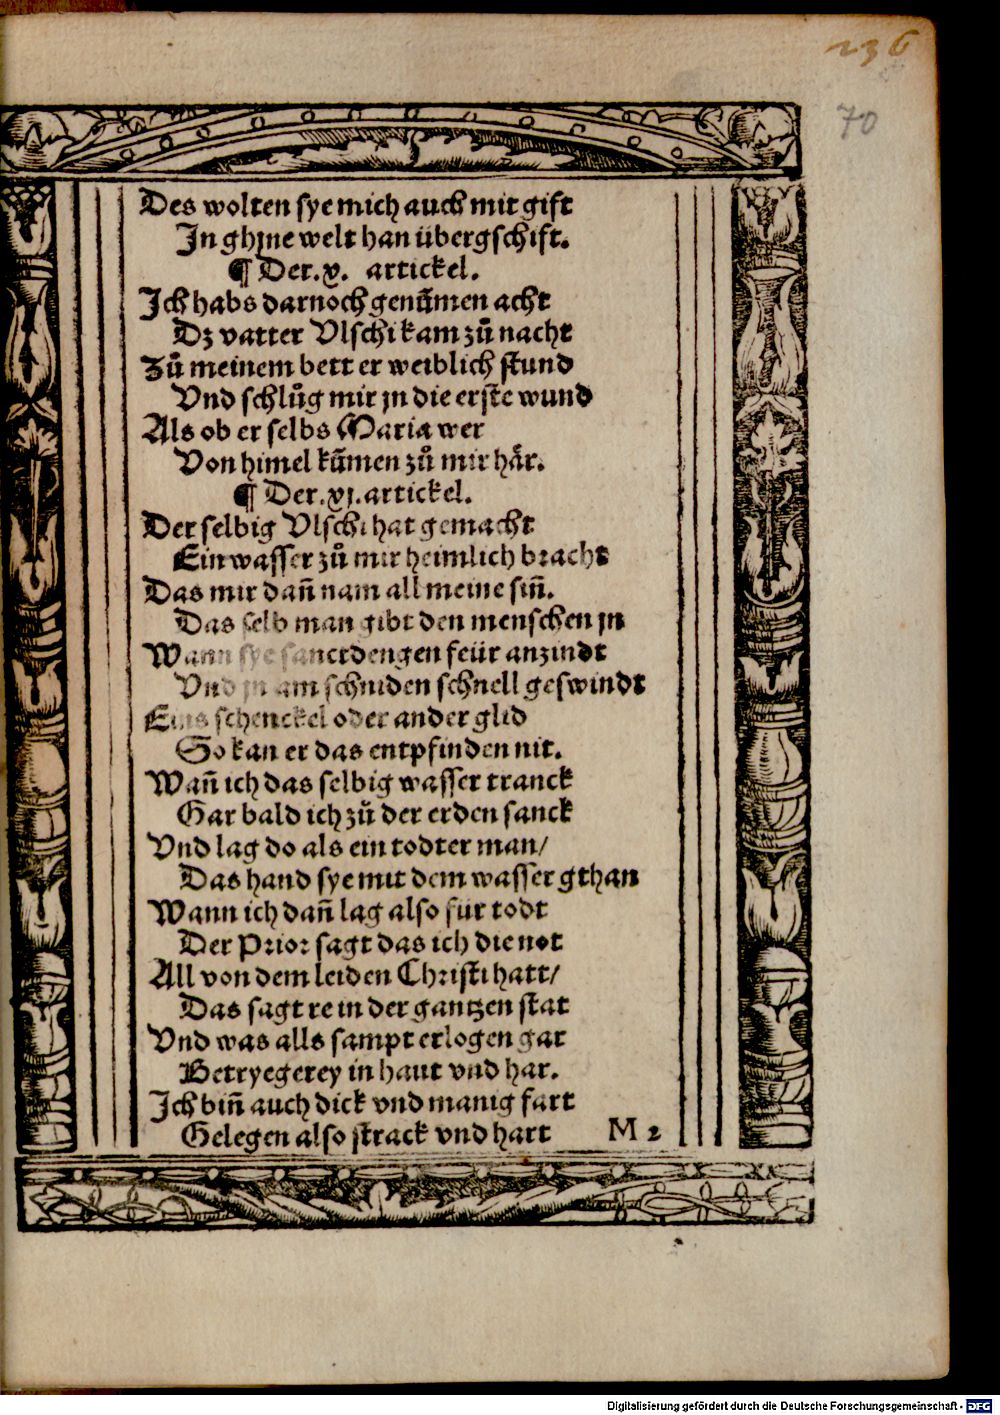 236
70
Des wolten sye mich auch mit gift
In ghjne welt han übergschift.
¶ Der .x. artickel.
Ich habs darnoch genūmen acht
Dz vatter Vlschi kam zů nacht
Zů meinem bett er weiblich stund
Vnd schlůg mir jn die erste wund
Als ob er selbs Maria wer
Von himel kūmen zů mir hår.
¶ Der .xj. artickel.
Der selbig Vlschi hat gemacht
Ein wasser zů mir heimlich bracht
Das mir dañ nam all meine siñ.
Das selb man gibt den menschen jn
Wann sye sanctdengen feür anzindt
Vnd jn am schniden schnell geswindt
Eins schenckel oder ander glid
So kan er das entpfinden nit.
Wañ ich das selbig wasser tranck
Gar bald ich zů der erden sanck
Vnd lag do als ein todter man/
Das hand sye mit dem wasser gthan
Wann ich dañ lag also fur todt
Der Prior sagt das ich die not
All von dem leiden Christi hatt/
Das sagt re in der gantzen stat
Vnd was alls sampt erlogen gar
Betryegerey in haut vnd har.
Ich biñ auch dick vnd manig fart
Gelegen also strack vnd hart
M 2
Digitalisierung gefördert durch die Deutsche Forschungsgemeinschaft - DFG